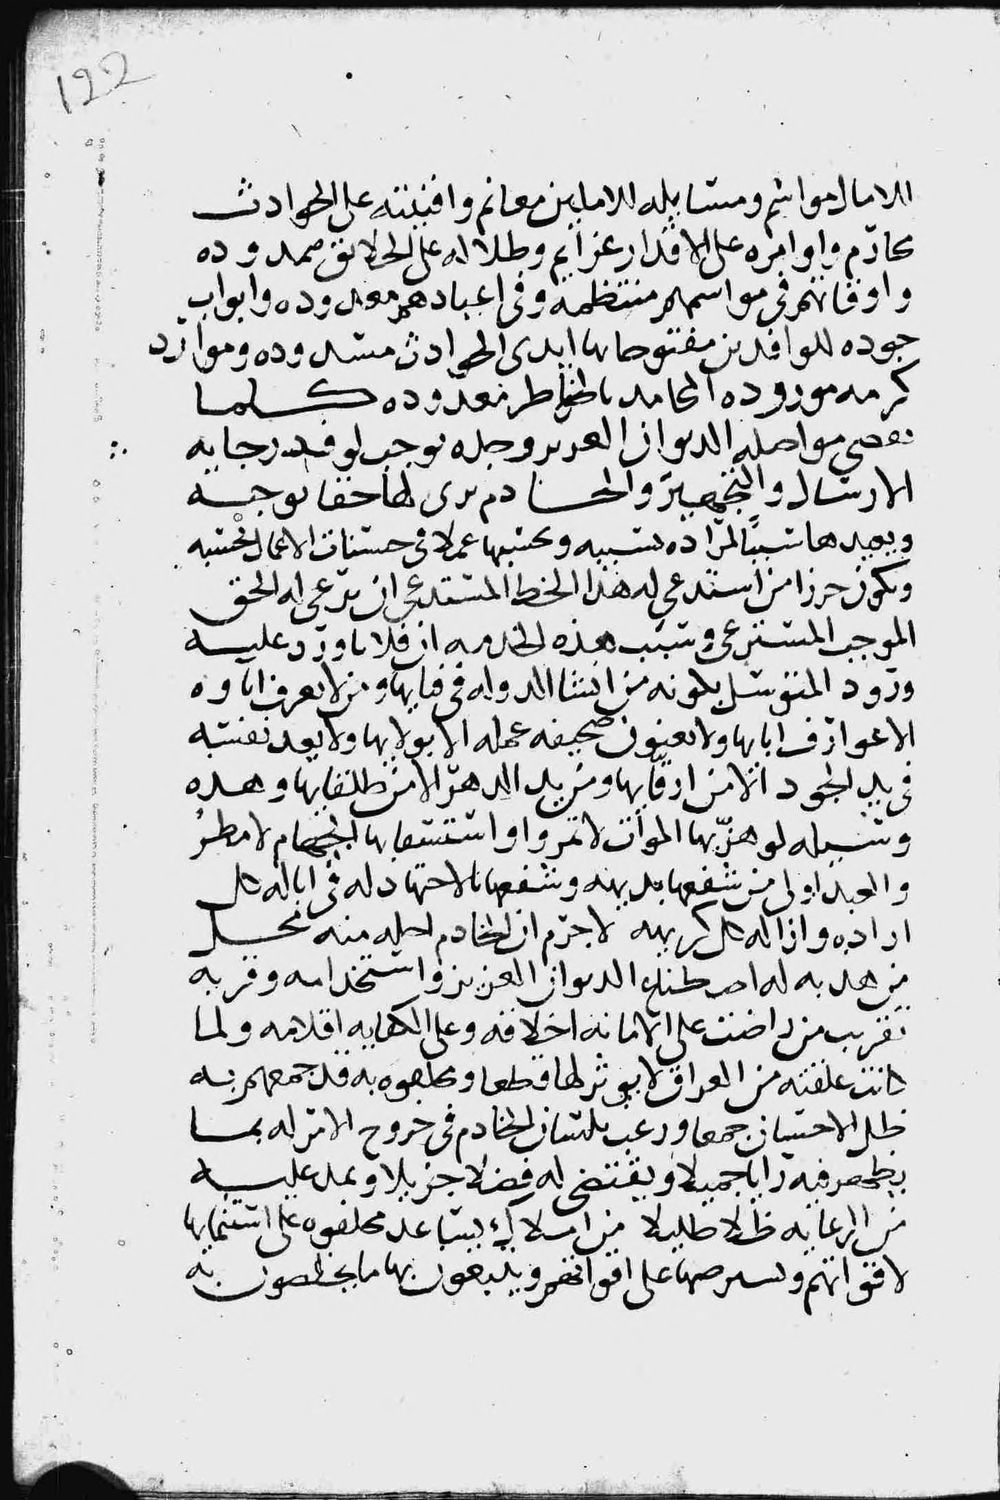 122
للامال مواسم ومسايله للاملين مغانم وافنيته على الحوادث
محارم واوامره على الاقدار عزايم وظلاله على الخلايق ممدوده
واوقاتهم في مواسمهم منتظمة وفي اعيادهم معدوده وابواب
جوده للوافدين مفتوحا بها ايدى الحوادث مسدوده وموارد
كرمه موروده المحامد بالخواطر معدوده كلما
مواصله الديوان العزيز وجده توجب لوفد رجايه
الارسال والتجهيز والخادم يرى لها حقا يوجبه
ويعيدها سببا لمراده يسببه ويحتسبها عملا في حسنات الاعمال يحتسبه
ويكون حرزا من استدعي له هذا الخط المستدعى ان يدعى له الحق
الموجب المسترعى وسبب هذه الخدمه ان فلانا ورد عليه
ورود المتوسل بكونه من انشا الدوله في فنايها ومن لا يعرف اباوه
الا عوارف ابايها ولا يعنون صحيفه عمله الا بولايها ولا يعد نفسه
في يد الجود الا من ارقايها ومن يد الدهر الا من طلقايها وهذه
وسيله لو هز بها الموات لاثمر او استسقا بها الجهام لامطر
والعبد اولى من شفعها بديهه وشفعها بالاجتهاد له في اناله كل
اراده وازاله كل كريهه لا جرم ان الخادم احله منه محل
من هذبه له اصطناع الديوان العزيز واستخدامه وقربه
تقريب من راضت على الامانه اخلاقه وعلى الكفايه اقلامه ولما
كانت علقته من العراق لا يوثر لها قطعا ومخلفوه به قد جمعهم به
ظل الاحسان جمعا ورغب بلسان الخادم في خروج الامر له بما
يظهر فيه رايا جميلا ويقتضى له فضلا جزيلا ويمد عليه
من الرعايه ظلا ظليلا من املاك يساعد مخلفوه على استنمايها
لاقواتهم و على اقواتهم و بها ما به